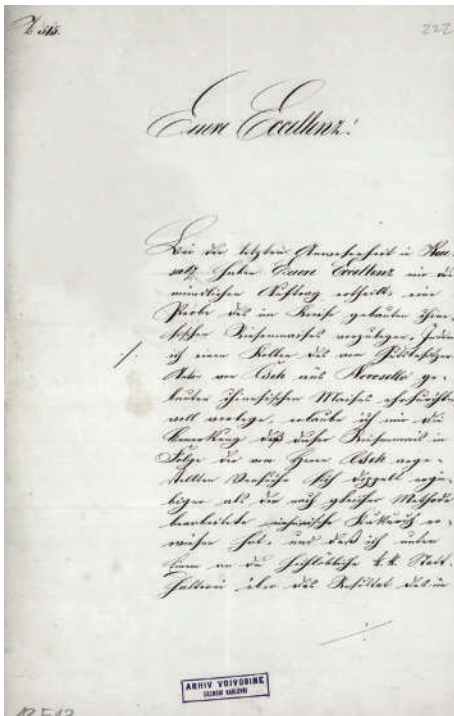 222
Euere Excellenz!
Bei der letzten Anwesenheit in Neu-
satz haben Euere Excellenz mir den
mündlichen Auftrag ertheilt, eine
Probe des im Kreise gebauten chine-
sischen Riesenmaises vorzulegen. Indem
ich einen Kolben des vom Gutsbesitzer
von aus Novoselo ge-
bauten chinesischen Maises ehrfurchts-
voll vorlege, erlaube ich mir die
Bemerkung daß dieser Riesenmais in
Folge der vom Herrn ange-
stellten Versuche sich doppelt ergie-
biger als der nach gleicher Methode
bearbeitete Kukurutz er-
wiesen hat, und daß ich unter
Einem an die hochlöbliche k.k. Statt-
halterei über das Resultat des im
ARHIV VOJVODINE
SREMSKI KARLOVCI